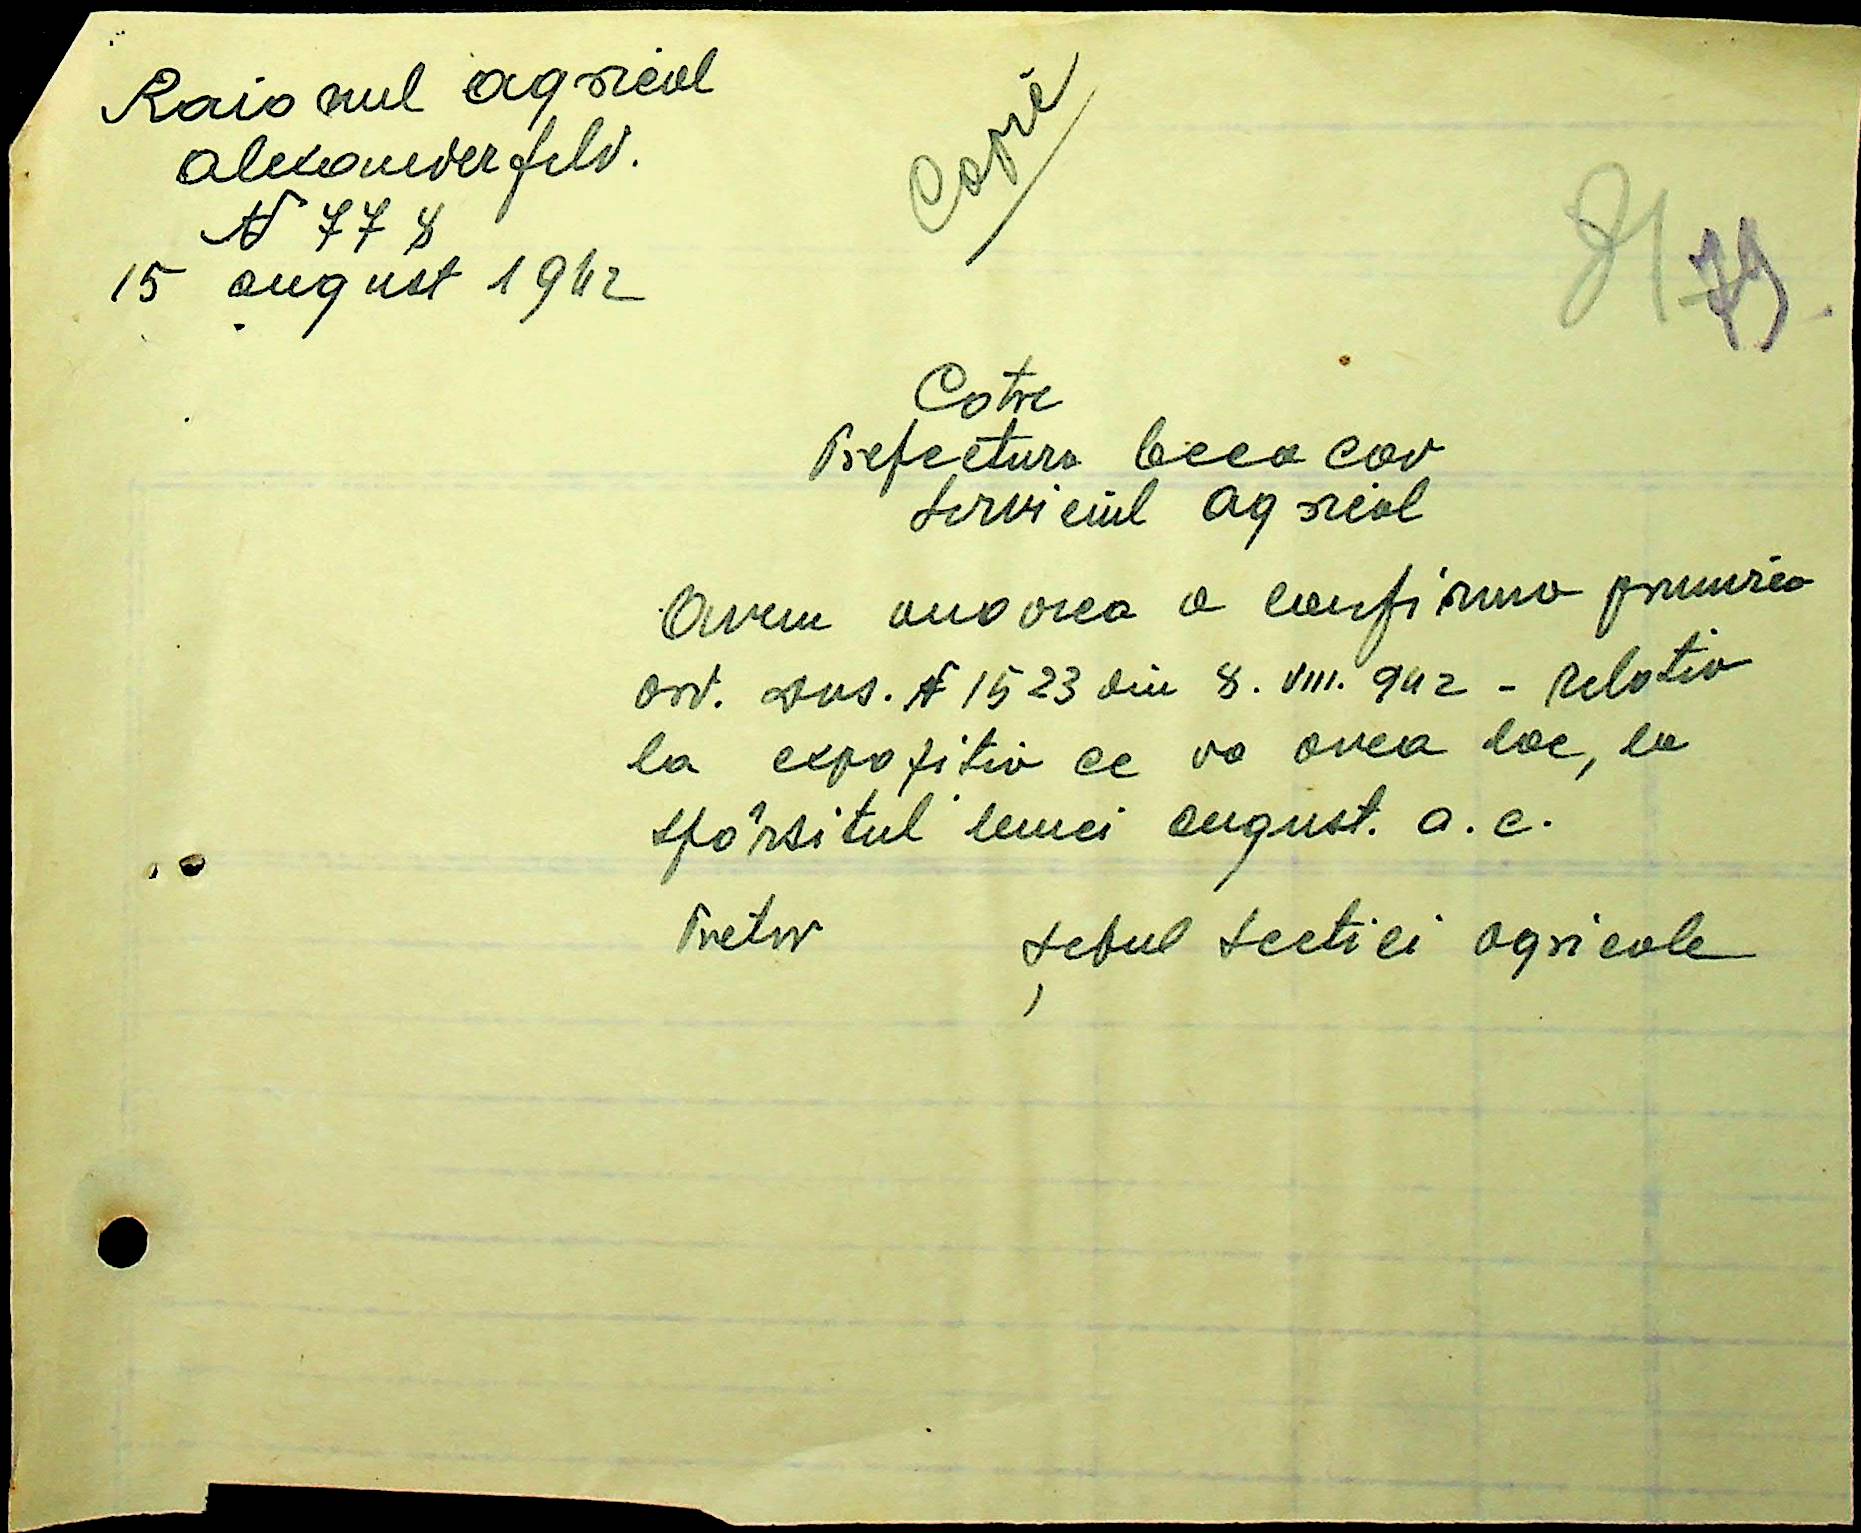 Raionul agricol
Alexanderfeld.
N 778
15 august 1942
Copie
81 79.
Cotre
Prefectura Oceacov
Serviciul Agricol
Avem onoarea a confirma primirea
ord. Dvs. N 1523 din 8. VIII. 942 - relativ
la expozitia ce va avea loc, la
sfârsitul lunei august. a. c.
Pretor șeful sectiei agricole